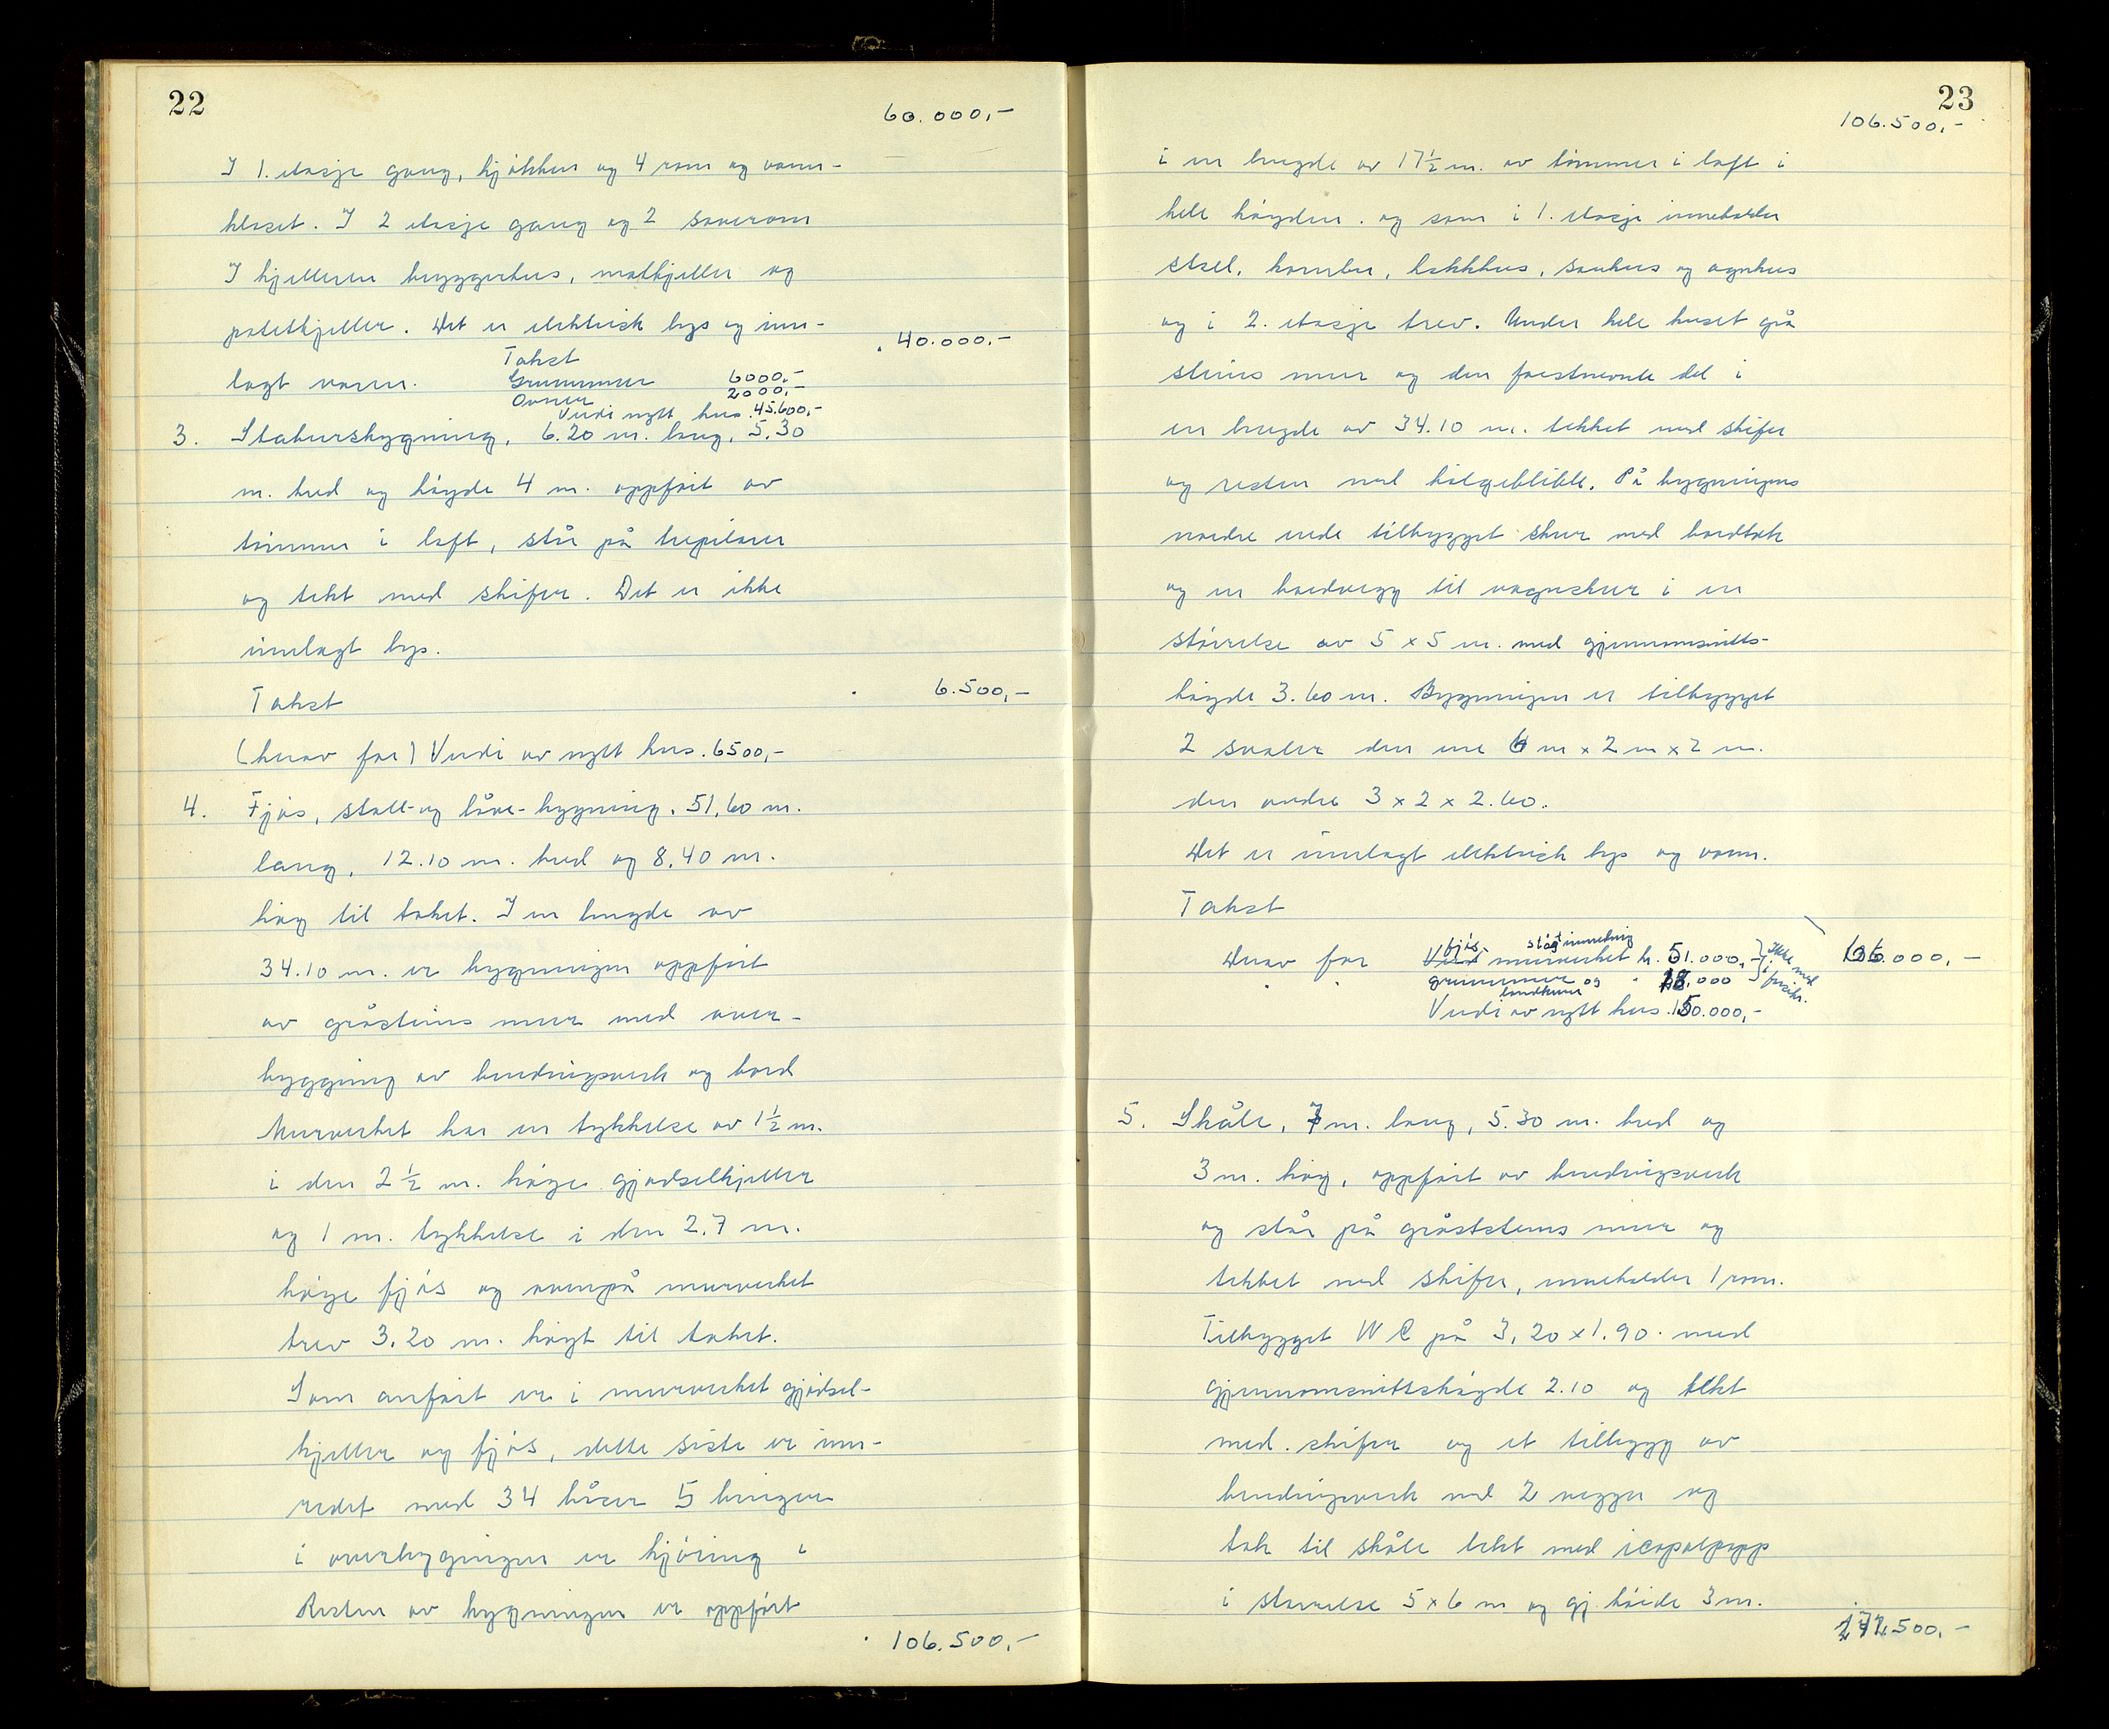 22
60.000,-
I 1. etasje gang, kjøkken og 4 rom og vann-
kloset. I 2 etasje gang og 2 soverom
I kjelleren bryggerhus, matkjeller og
potetkjeller. Det er elektrisk lys og inn-
. 40.000,-
lagt vann. Takst
Grunnmur 6000,-
Ovner 2000,-
Verdi nytt hus. 45.600,-
3. Stabursbygning, 6.20 m. lang, 5.30
m. bred og høyde 4 m. oppført av
tømmer i laft, står på trepilarer
og tekt med skifer. Det er ikke
innlagt lys.
Takst . 6.500,-
(herav for) Verdi av nytt hus. 6500,-
4. Fjøs, stall- og låve-bygning. 51,60 m.
lang, 12.10 m. bred og 8,40 m.
høg til taket. I en lengde av
34.10 m. er bygningen oppført
av gråsteins mur med over-
bygging av bindingsverk og bord
Murverket har en tykkelse av 1½ m.
i den 2½ m. høge gjødselkjeller
og 1 m. tykkelse i den 2.7 m.
høge fjøs og ovenpå murverket
trev 3,20 m. høgt til taket.
Som anført er i murverket gjødsel-
kjeller og fjøs, dette siste er inn-
redet med 34 båser 5 binger
i overbygningen er kjøring i
Resten av bygningen er oppført
. 106.500,-
23
106.500,-
i en lengde av 17½ m. av tømmer i laft i
hele høyden. og som i 1. etasje inneholder
stall, kornbu, hakkhus, sauhus og agnhus
og i 2. etasje trev. Under hele huset grå
steins mur og den førstnevnte del i
en lengde av 34.10 m. tekket med skifer
og resten med bølgeblikk. På bygningens
nordre ende tilbygget skur med bordtak
og en bordvegg til vognskur i en
størrelse av 5 x 5 m. med gjennomsnitts-
høyde 3.60 m. Bygningen er tilbygget
2 svaler den ene 4 m x 2 m x 2 m.
den andre 3 x 2 x 2.60.
Det er innlagt elektrisk lys og vann.
Takst
fjøs- innredning
Derav for murverket kr. 51.000,- Ikke med
66.000,-
" " grunnmur og " 18.000 forsikr.
Verdi av nytt hus. 150.000,-
5. Skåle, 7 m. lang, 5.30 m. bred og
3 m. høg, oppført av bindingsverk
og står på gråststeins mur og
tekket med skifer, inneholder 1 rom.
Tilbygget W C på 3,20 x 1.90. med
gjennomsnittshøyde 2.10 og tekt
med. skifer og et tilbygg av
bindingsverk med 2 vegger og
tak til skåle tekt med icopalpapp
i størrelse 5 x 6 m og gj. høide 3 m.
172.500,-